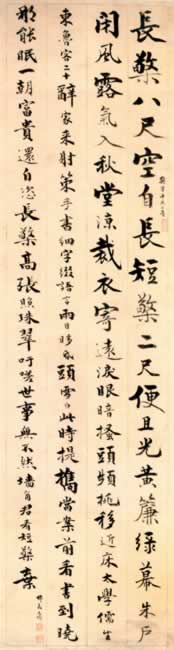 長檠八尺空自長短檠二尺便且光黃簾綠幕朱戶
閉風露氣入秋堂涼裁衣寄遠淚眼暗搔頭頻挑移近床太學儒生
東魯客二十辭家來射策書細字綴語言兩目眵頭雪白此時提攜當案前看書到曉
那能眠一朝富貴還自恣長檠高張照珠翠吁嗟世事無不然墻角君看短檠棄